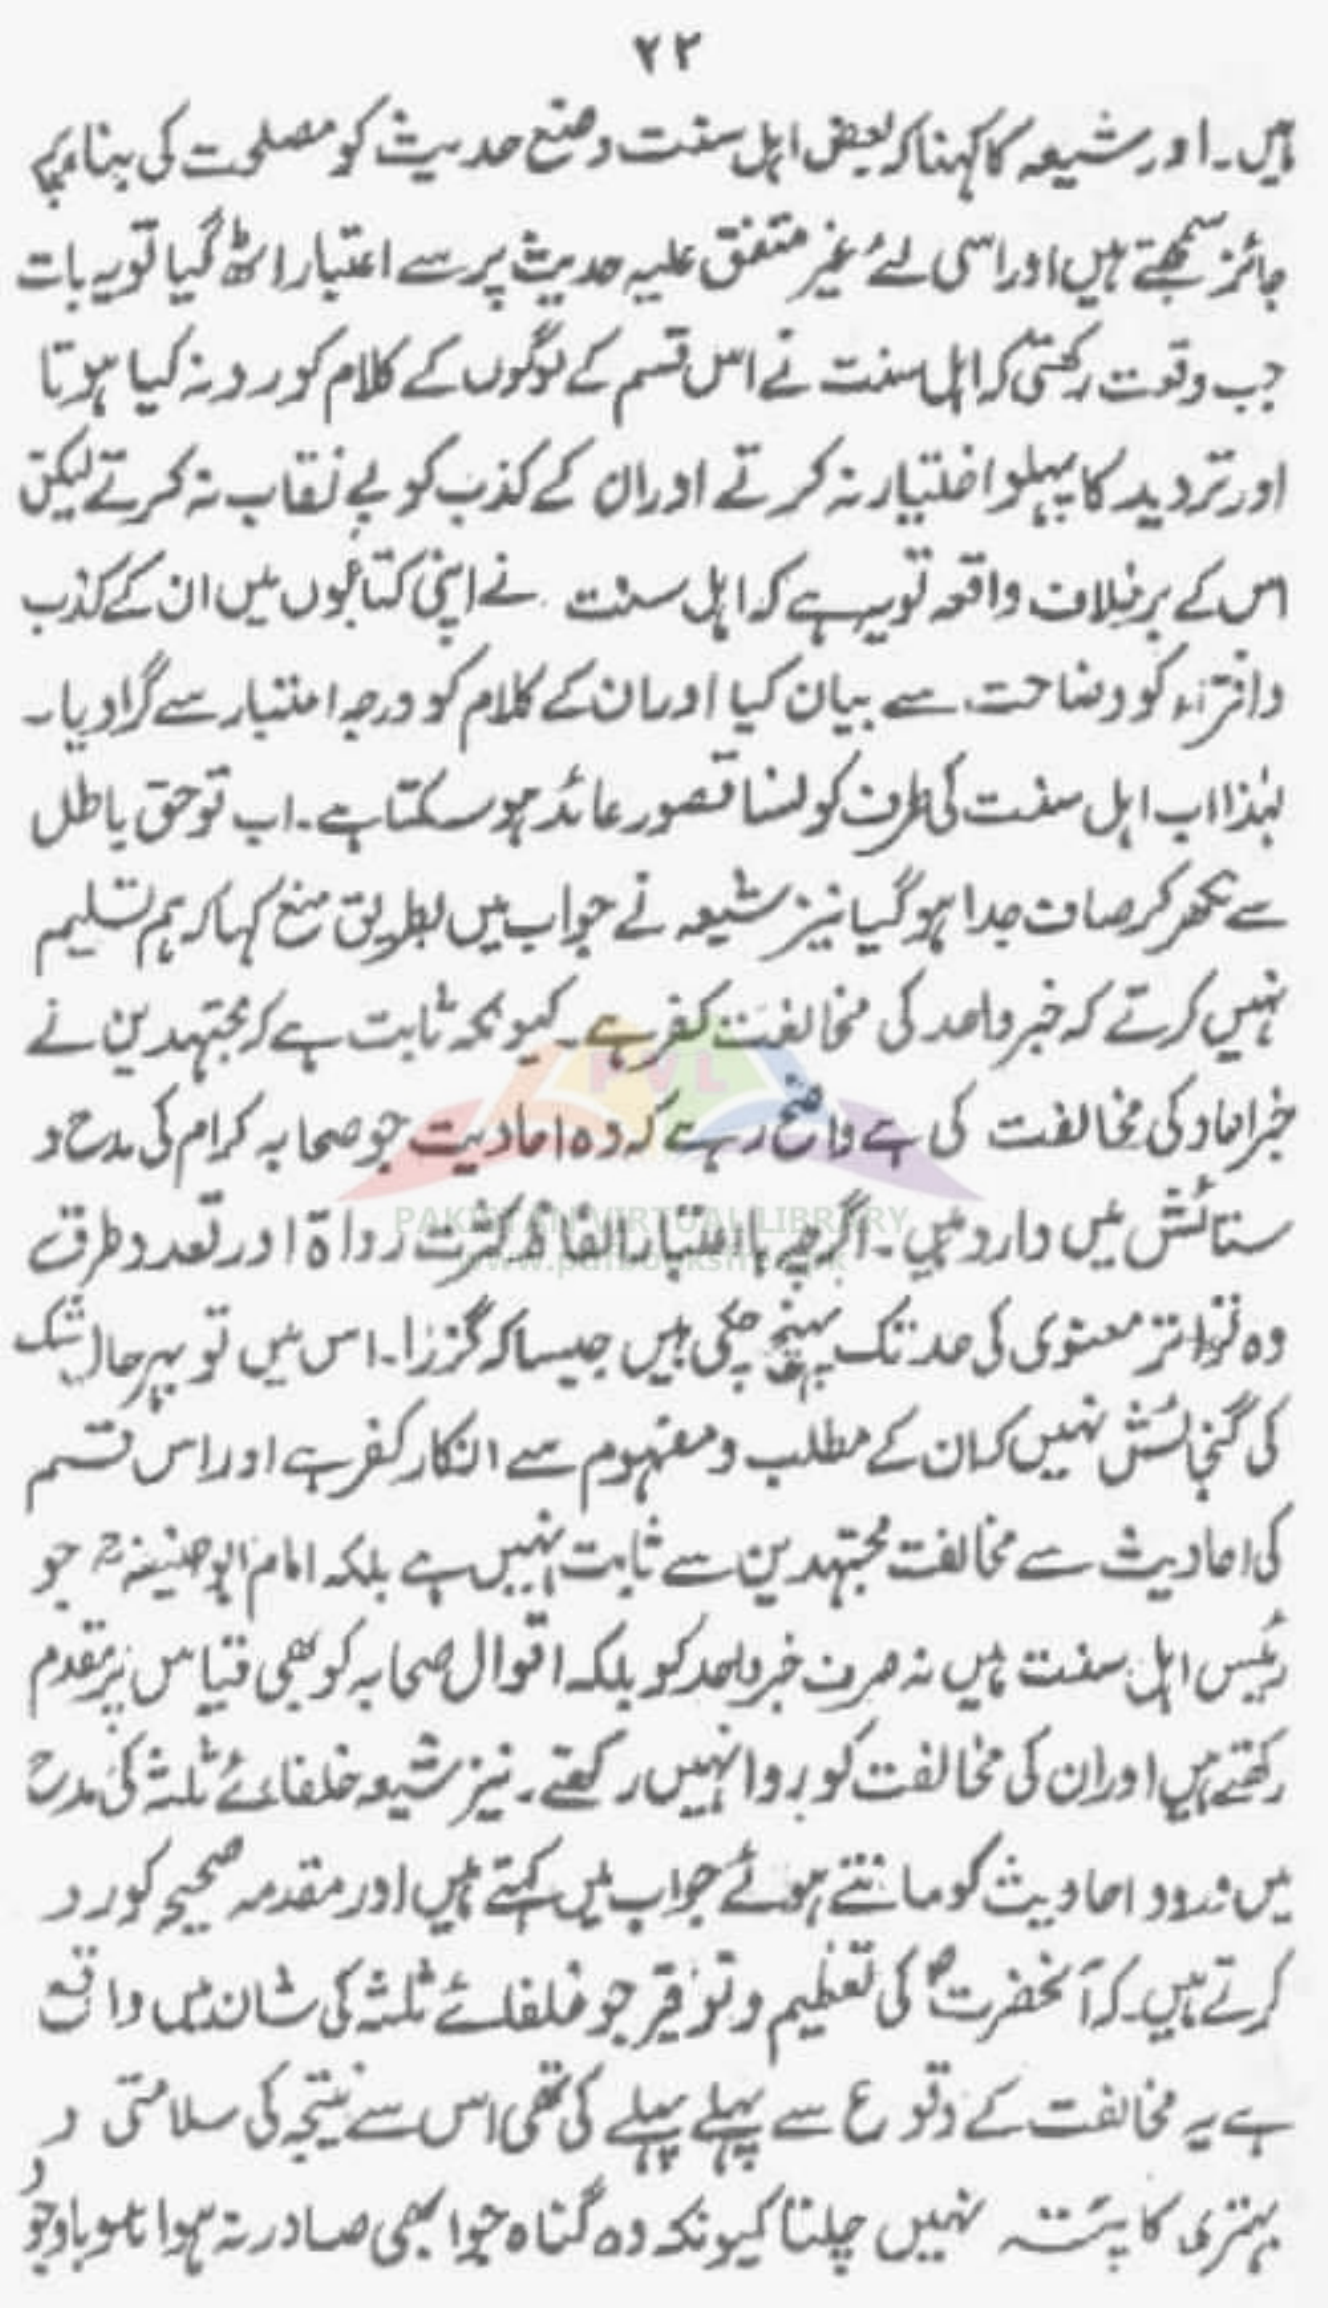 ۲۲
ہیں۔ اور شیعہ کا کہنا کہ بعض اہل سنت وضع حدیث کو مصلحت کی بناء پر
جائز سمجھتے ہیں اور اسی لئے غیر متفق علیہ حدیث پر سے اعتبار اٹھ گیا تو یہ بات
جب وقعت رکھتی کہ اہل سنت نے اس قسم کے لوگوں کے کلام کو رد نہ کیا ہوتا
اور تردید کا پہلو اختیار نہ کرتے اور ان کے کذب کو بے نقاب نہ کرتے لیکن
اس کے برخلاف واقعہ تو یہ ہے کہ اہل سنت نے اپنی کتابوں میں ان کے کذب
و افتراء کو وضاحت سے بیان کیا اور ان کے کلام کو درجہ اعتبار سے گرا دیا۔
لہٰذا اب اہل سنت کی طرف کونسا قصور عائد ہو سکتا ہے۔ اب تو حق باطل
سے نکھر کر صاف جدا ہو گیا نیز شیعہ نے جواب میں بطریق منع کہا کہ ہم تسلیم
نہیں کرتے کہ خبر واحد کی مخالفت کفر ہے۔ کیونکہ ثابت ہے کہ مجتہدین نے
خبر احاد کی مخالفت کی ہے واضح رہے کہ وہ احادیث جو صحابہ کرام کی مدح و
ستائش میں وارد ہیں۔ اگرچہ باعتبار الفاظ کثرت رواۃ اور تعدد طرق
وہ تواتر معنوی کی حد تک پہنچ چکی ہیں جیسا کہ گزرا۔ اس میں تو بہر حال شک
کی گنجائش نہیں کہ ان کے مطلب و مفہوم سے انکار کفر ہے اور اس قسم
کی احادیث سے مخالفت مجتہدین سے ثابت نہیں ہے بلکہ امام ابو حنیفہؒ جو
رئیس اہل سنت ہیں نہ صرف خبر واحد کو بلکہ اقوال صحابہ کو بھی قیاس پر مقدم
رکھتے ہیں اور ان کی مخالفت کو روا نہیں رکھتے۔ نیز شیعہ خلفائے ثلثہ کی مدح
میں ورود احادیث کو مانتے ہوئے جواب میں کہتے ہیں اور مقدمہ صحیحہ کو رد
کرتے ہیں۔ کہ آنحضرتؐ کی تعظیم و توقیر جو خلفائے ثلثہ کی شان میں واقع
ہے یہ مخالفت کے وقوع سے پہلے پہلے کی تھی اس سے نتیجہ کی سلامتی و
بہتری کا پتہ نہیں چلتا کیونکہ وہ گناہ جو ابھی صادر نہ ہوا ہو باوجود
PVL
PAKISTAN VIRTUAL LIBRARY